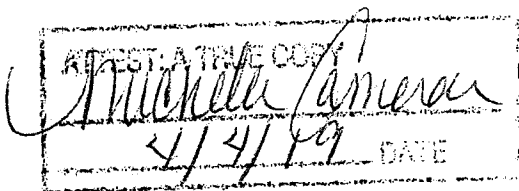 ATTEST: A TRUE COPY
Michelle Cameron
4/4/19 DATE